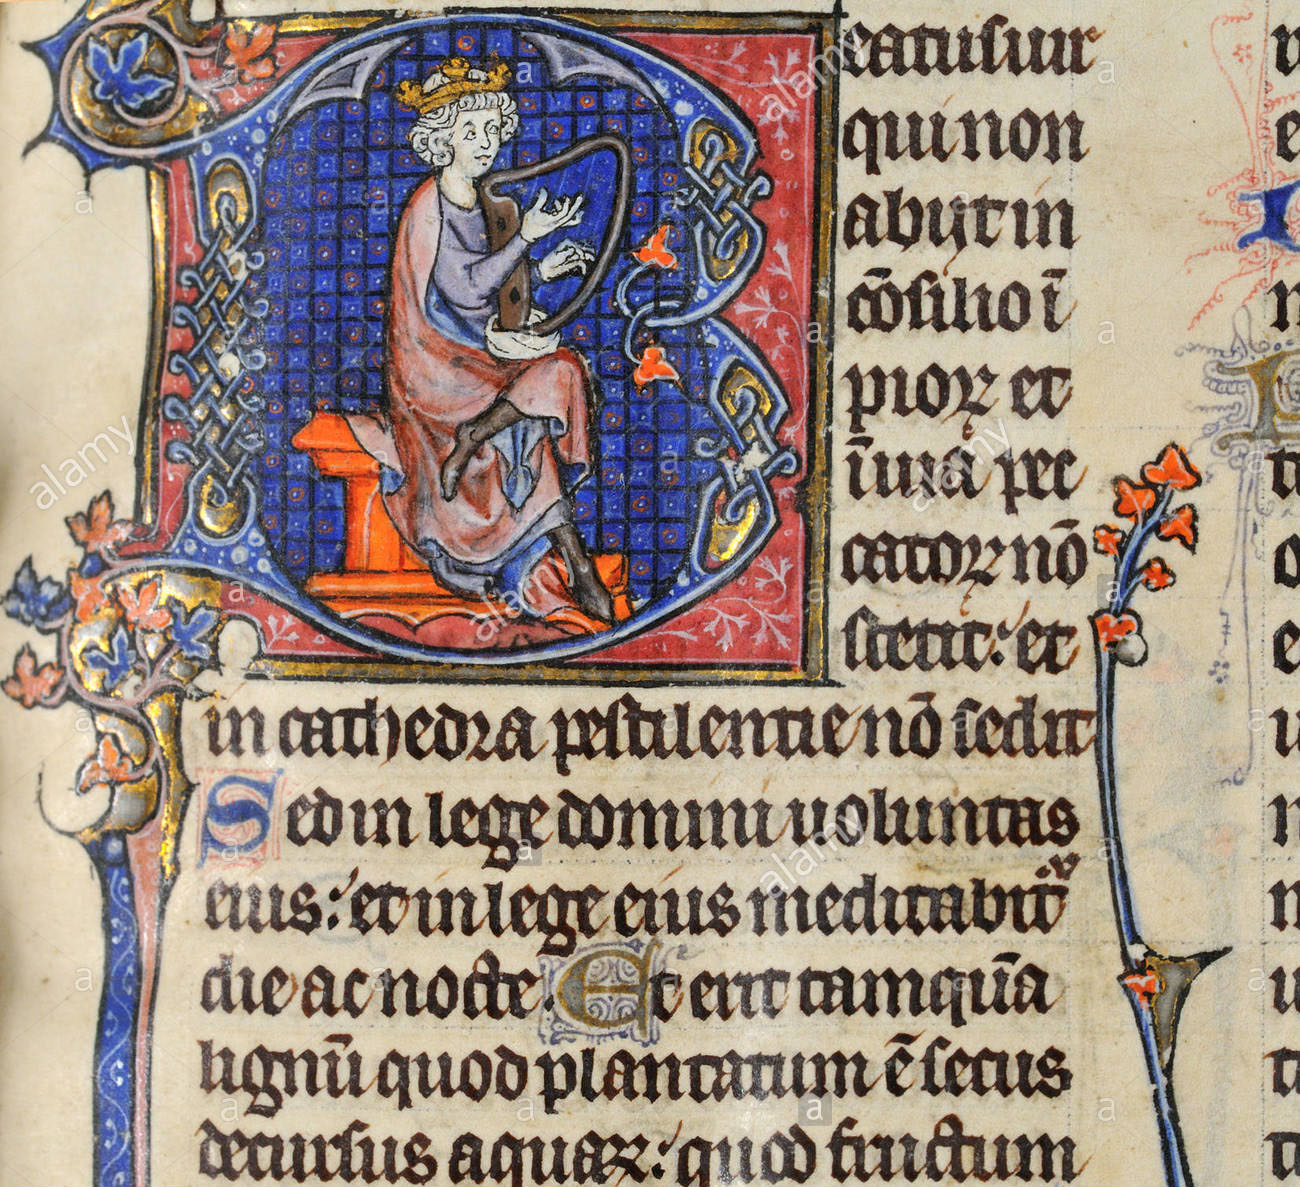 Beatus uir
qui non
abijt in
cōsilio ī
pioꝝ et
ī uia pec
catoꝝ nō
stetit: et
in cathedra pestilentie nō sedit
Sed in lege domini uoluntas
eius: et in lege eius meditabit᷑
die ac nocte. Et erit tamquā
lignū quod plantatum ē secus
decursus aquaꝝ: quod fructum